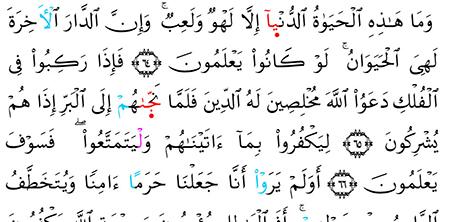 وَمَا هَٰذِهِ الْحَيَوٰةُ الدُّنْيَآ إِلَّا لَهْوٌ وَلَعِبٌ ۚ وَإِنَّ الدَّارَ الْأَخِرَةَ
لَهِىَ الْحَيَوَانُ ۚ لَوْ كَانُوا۟ يَعْلَمُونَ ٦٤ فَإِذَا رَكِبُوا۟ فِى
الْفُلْكِ دَعَوُا۟ اللَّهَ مُخْلِصِينَ لَهُ الدِّينَ فَلَمَّا نَجَّىٰهُمْ إِلَى الْبَرِّ إِذَا هُمْ
يُشْرِكُونَ ٦٥ لِيَكْفُرُوا۟ بِمَا ءَاتَيْنَٰهُمْ وَلِيَتَمَتَّعُوا۟ ۖ فَسَوْفَ
يَعْلَمُونَ ٦٦ أَوَلَمْ يَرَوْا۟ أَنَّا جَعَلْنَا حَرَمًا ءَامِنًا وَيُتَخَطَّفُ